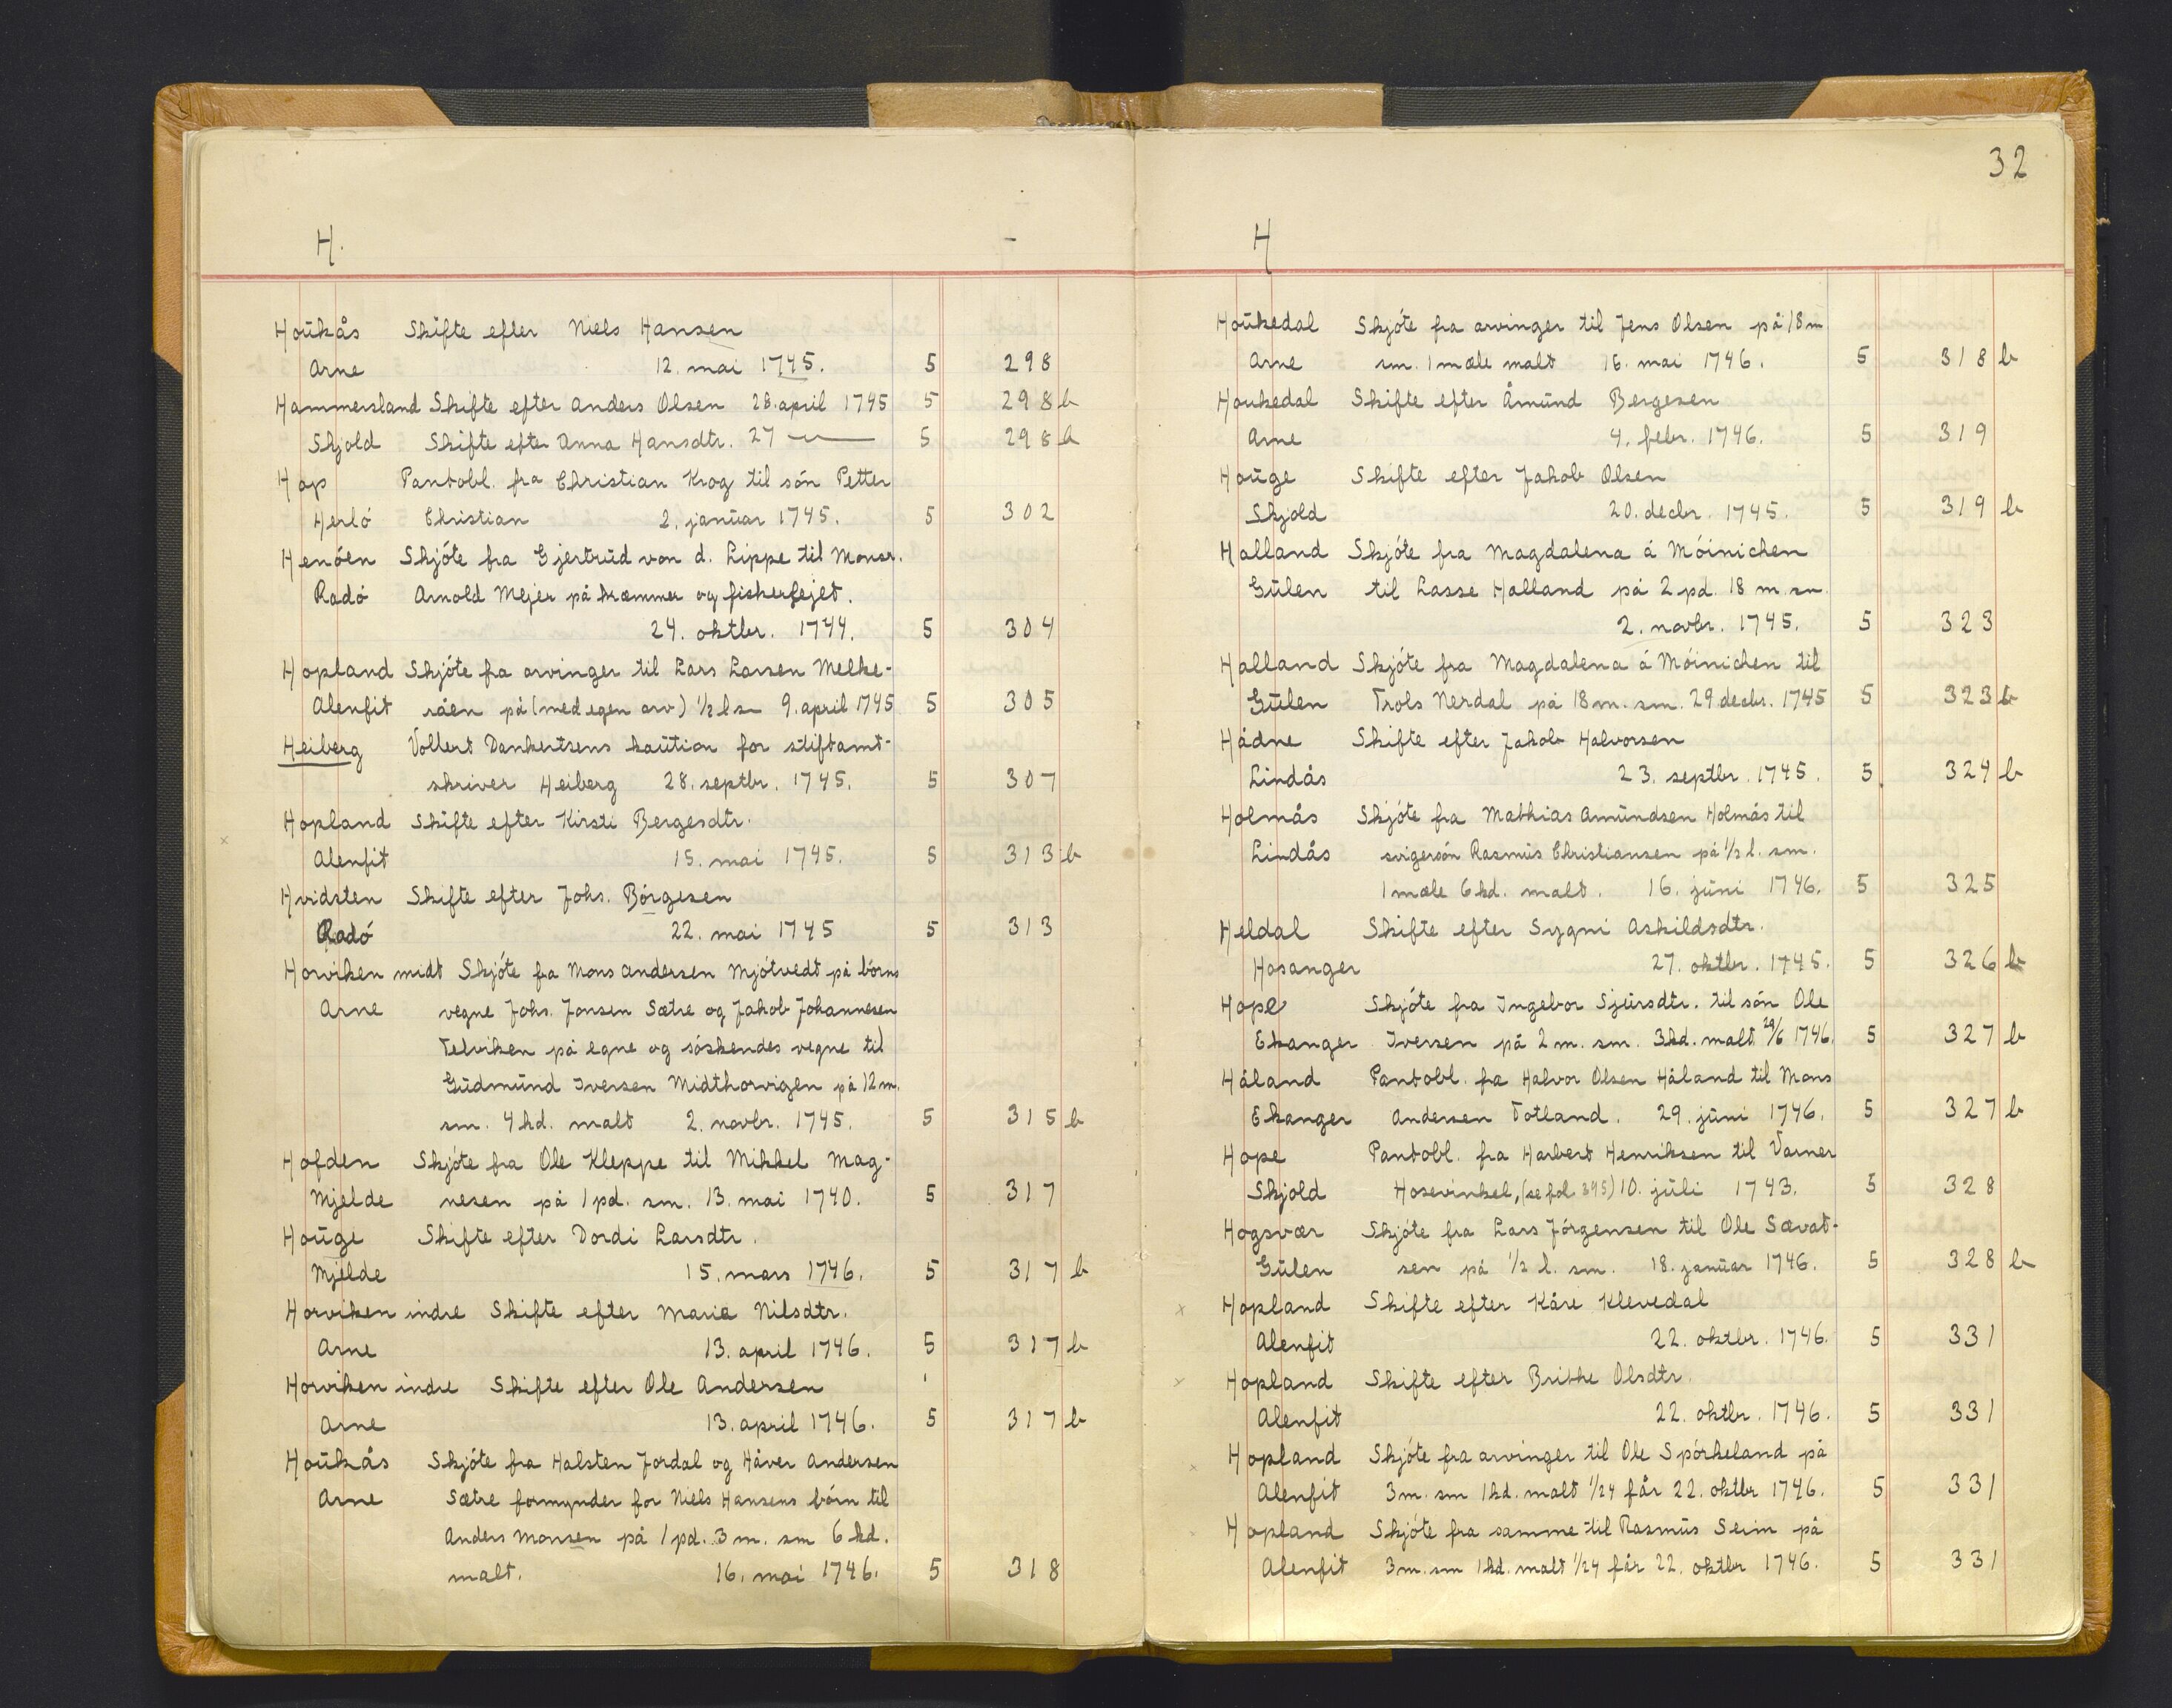 H.
Houkås Skifte efter Niels Hansen
Arne 12. mai 1745. 5 298
Hammersland Skifte efter Anders Olsen 28. april 1745 5 298 b
Skjold Skifte efter Anna Hansdtr. 27 — 5 298 b
Hop Pantobl. fra Christian Krog til són Petter
Herló Christian 2. januar 1745. 5 302
Henóen Skjóte fra Gjertrud von d. Lippe til Monsr.
Radó Arnold Mejer på kræmmer og fisherlejet.
24. oktbr. 1744. 5 304
Hopland Skjóte fra arvinger til Lars Larsen Melke-
Alenfit råen på (med egen arv) ½ l sm 9. april 1745 5 305
Heiberg Vollert Dankertsens kaution for stiftamt-
skriver Heiberg 28. septbr. 1745. 5 307
Hopland Skifte efter Kirsti Bergesdtr.
Alenfit 15. mai 1745. 5 313 b
Hvidsten Skifte efter Johs. Bórgesen
Radó 22. mai 1745 5 313
Horviken midt Skjóte fra Mons Andersen Mjótvedt på bórns
Arne vegne Johs. Jonsen Sætre og Jakob Johannesen
Telviken på egne og sóskendes vegne til
Gudmund Iversen Midthorvigen på 12 m.
sm. 4 kd. malt 2. novbr. 1745. 5 315 b
Hofden Skjóte fra Ole Kleppe til Mikkel Mag-
Mjelde nesen på 1 pd. sm. 13. mai 1740. 5 317
Houge Skifte efter Dordi Larsdtr.
Mjelde 15. mars 1746. 5 317 b
Horviken indre Skifte efter Marie Nilsdtr.
Arne 13. april 1746. 5 317 b
Horviken indre Skifte efter Ole Andersen
Arne 13. april 1746. 5 317 b
Houkås Skjóte fra Halsten Jordal og Håver Andersen
Arne Sætre formynder for Niels Hansens bórn til
Anders Monsen på 1 pd. 3 m. sm 6 kd.
malt. 16. mai 1746. 5 318
32
H
Houkedal Skjóte fra arvinger til Jens Olsen på 18 m
Arne sm. 1 mæle malt 16. mai 1746. 5 318 b
Houkedal Skifte efter Åmund Bergesen
Arne 4. febr. 1746. 5 319
Houge Skifte efter Jakob Olsen
Skjold 20. decbr. 1745. 5 319 b
Halland Skjóte fra Magdalena á Móinichen
Gulen til Lasse Halland på 2 pd. 18 m. sm
2. novbr. 1745. 5 323
Halland Skjóte fra Magdalena á Móinichen til
Gulen Trols Nerdal på 18 m. sm. 29. decbr. 1745 5 323 b
Hådne Skifte efter Jakob Halvorsen
Lindås 23. septbr. 1745. 5 324 b
Holmås Skjóte fra Mathias Amundsen Holmås til
Lindås svigersón Rasmus Christiansen på ½ l. sm.
1 mæle 6 kd. malt. 16. juni 1746. 5 325
Heldal Skifte efter Sygni Askildsdtr.
Hosanger 27. oktbr. 1745. 5 326 b
Hope Skjóte fra Ingebor Sjursdtr. til són Ole
Ekanger Iversen på 2 m. sm. 3 kd. malt 29/6 1746. 5 327 b
Håland Pantobl. fra Halvor Olsen Håland til Mons
Ekanger Andersen Totland. 29. juni 1746. 5 327 b
Hope Pantobl. fra Harbert Henriksen til Varner
Skjold Hosevinkel, (se fol 395) 10. juli 1743. 5 328
Hogsvær Skjóte fra Lars Jórgensen til Ole Sævat-
Gulen sen på ½ l. sm. 18. januar 1746. 5 328 b
Hopland Skifte efter Kåre Klevedal
Alenfit 22. oktbr. 1746. 5 331
Hopland Skifte efter Brithe Olsdtr.
Alenfit 22. oktbr. 1746. 5 331
Hopland Skjóte fra arvinger til Ole Spórkeland på
Alenfit 3 m. sm 1 kd. malt 1/24 får 22. oktbr 1746. 5 331
Hopland Skjóte fra samme til Rasmus Seim på
Alenfit 3 m. sm 1 kd. malt 1/24 får 22. oktbr 1746. 5 331